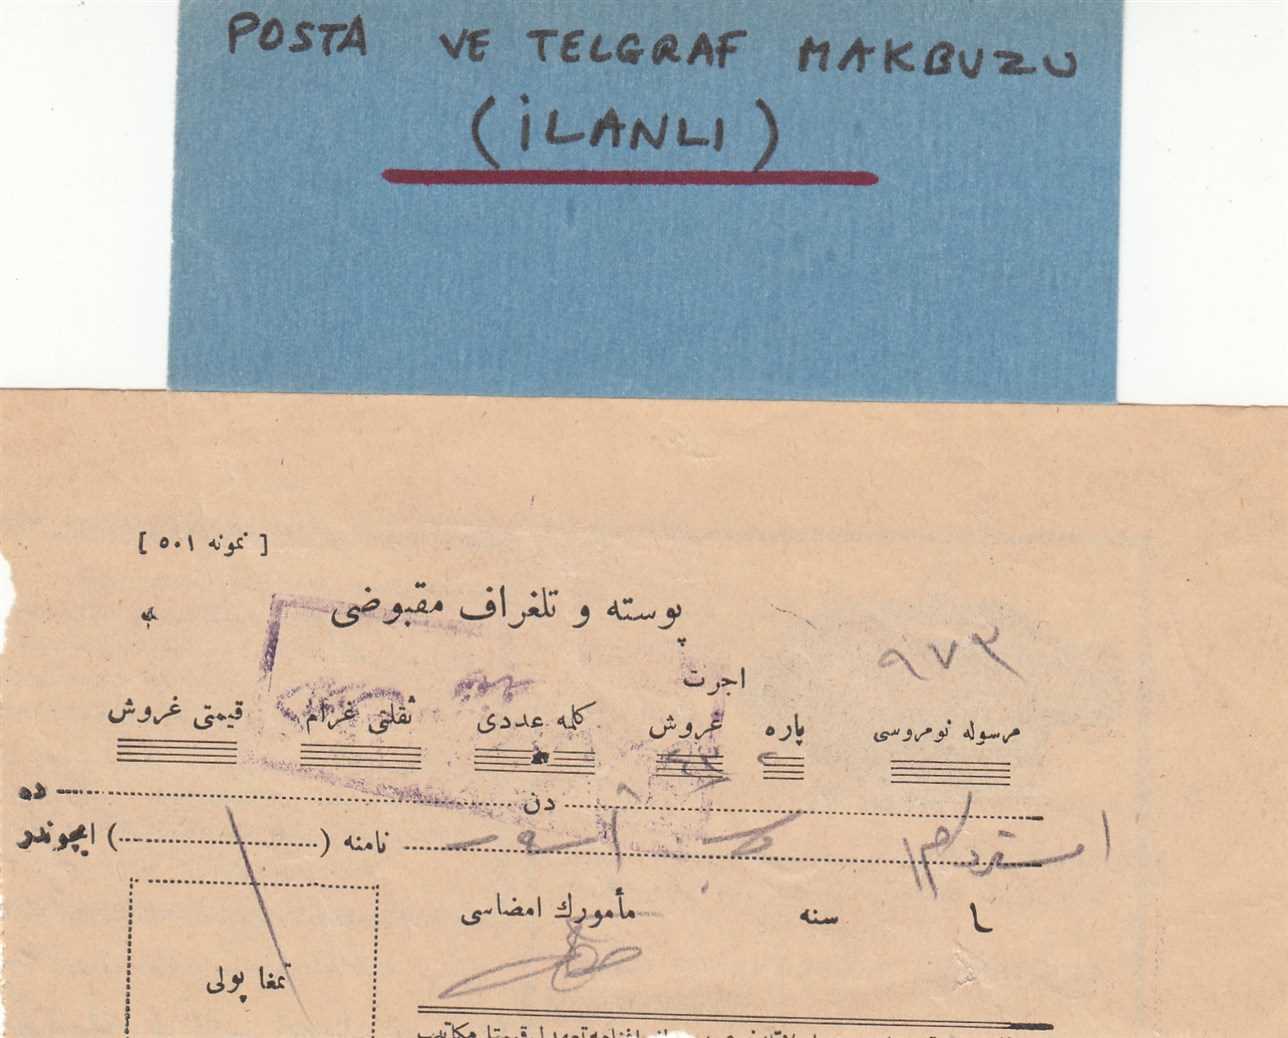 POSTA VE TELGRAF MAKBUZU
(İLANLI)
[ نمونه ٥٠١ ]
پوسته و تلغراف مقبوضی
٩٧٣
اجرت
مرسوله نومروسی پاره غروش كلمه عددی ثقلتی غرام قیمتی غروش
دن ده
نامنه ( ) ایچوندر
سنه مأمورك امضاسی
تمغا پولی